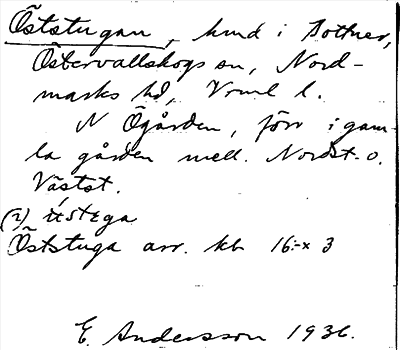 Öststugan, hmd i Bottner,
Östervallskogs sn, Nord-
marks hd, Vrml l.
N Ögården, förr i gam-
la gården mell. Nordst. o.
Västst.
(2) ústega
Öststuga arr. kb 16:-x 3
E. Andersson 1936.